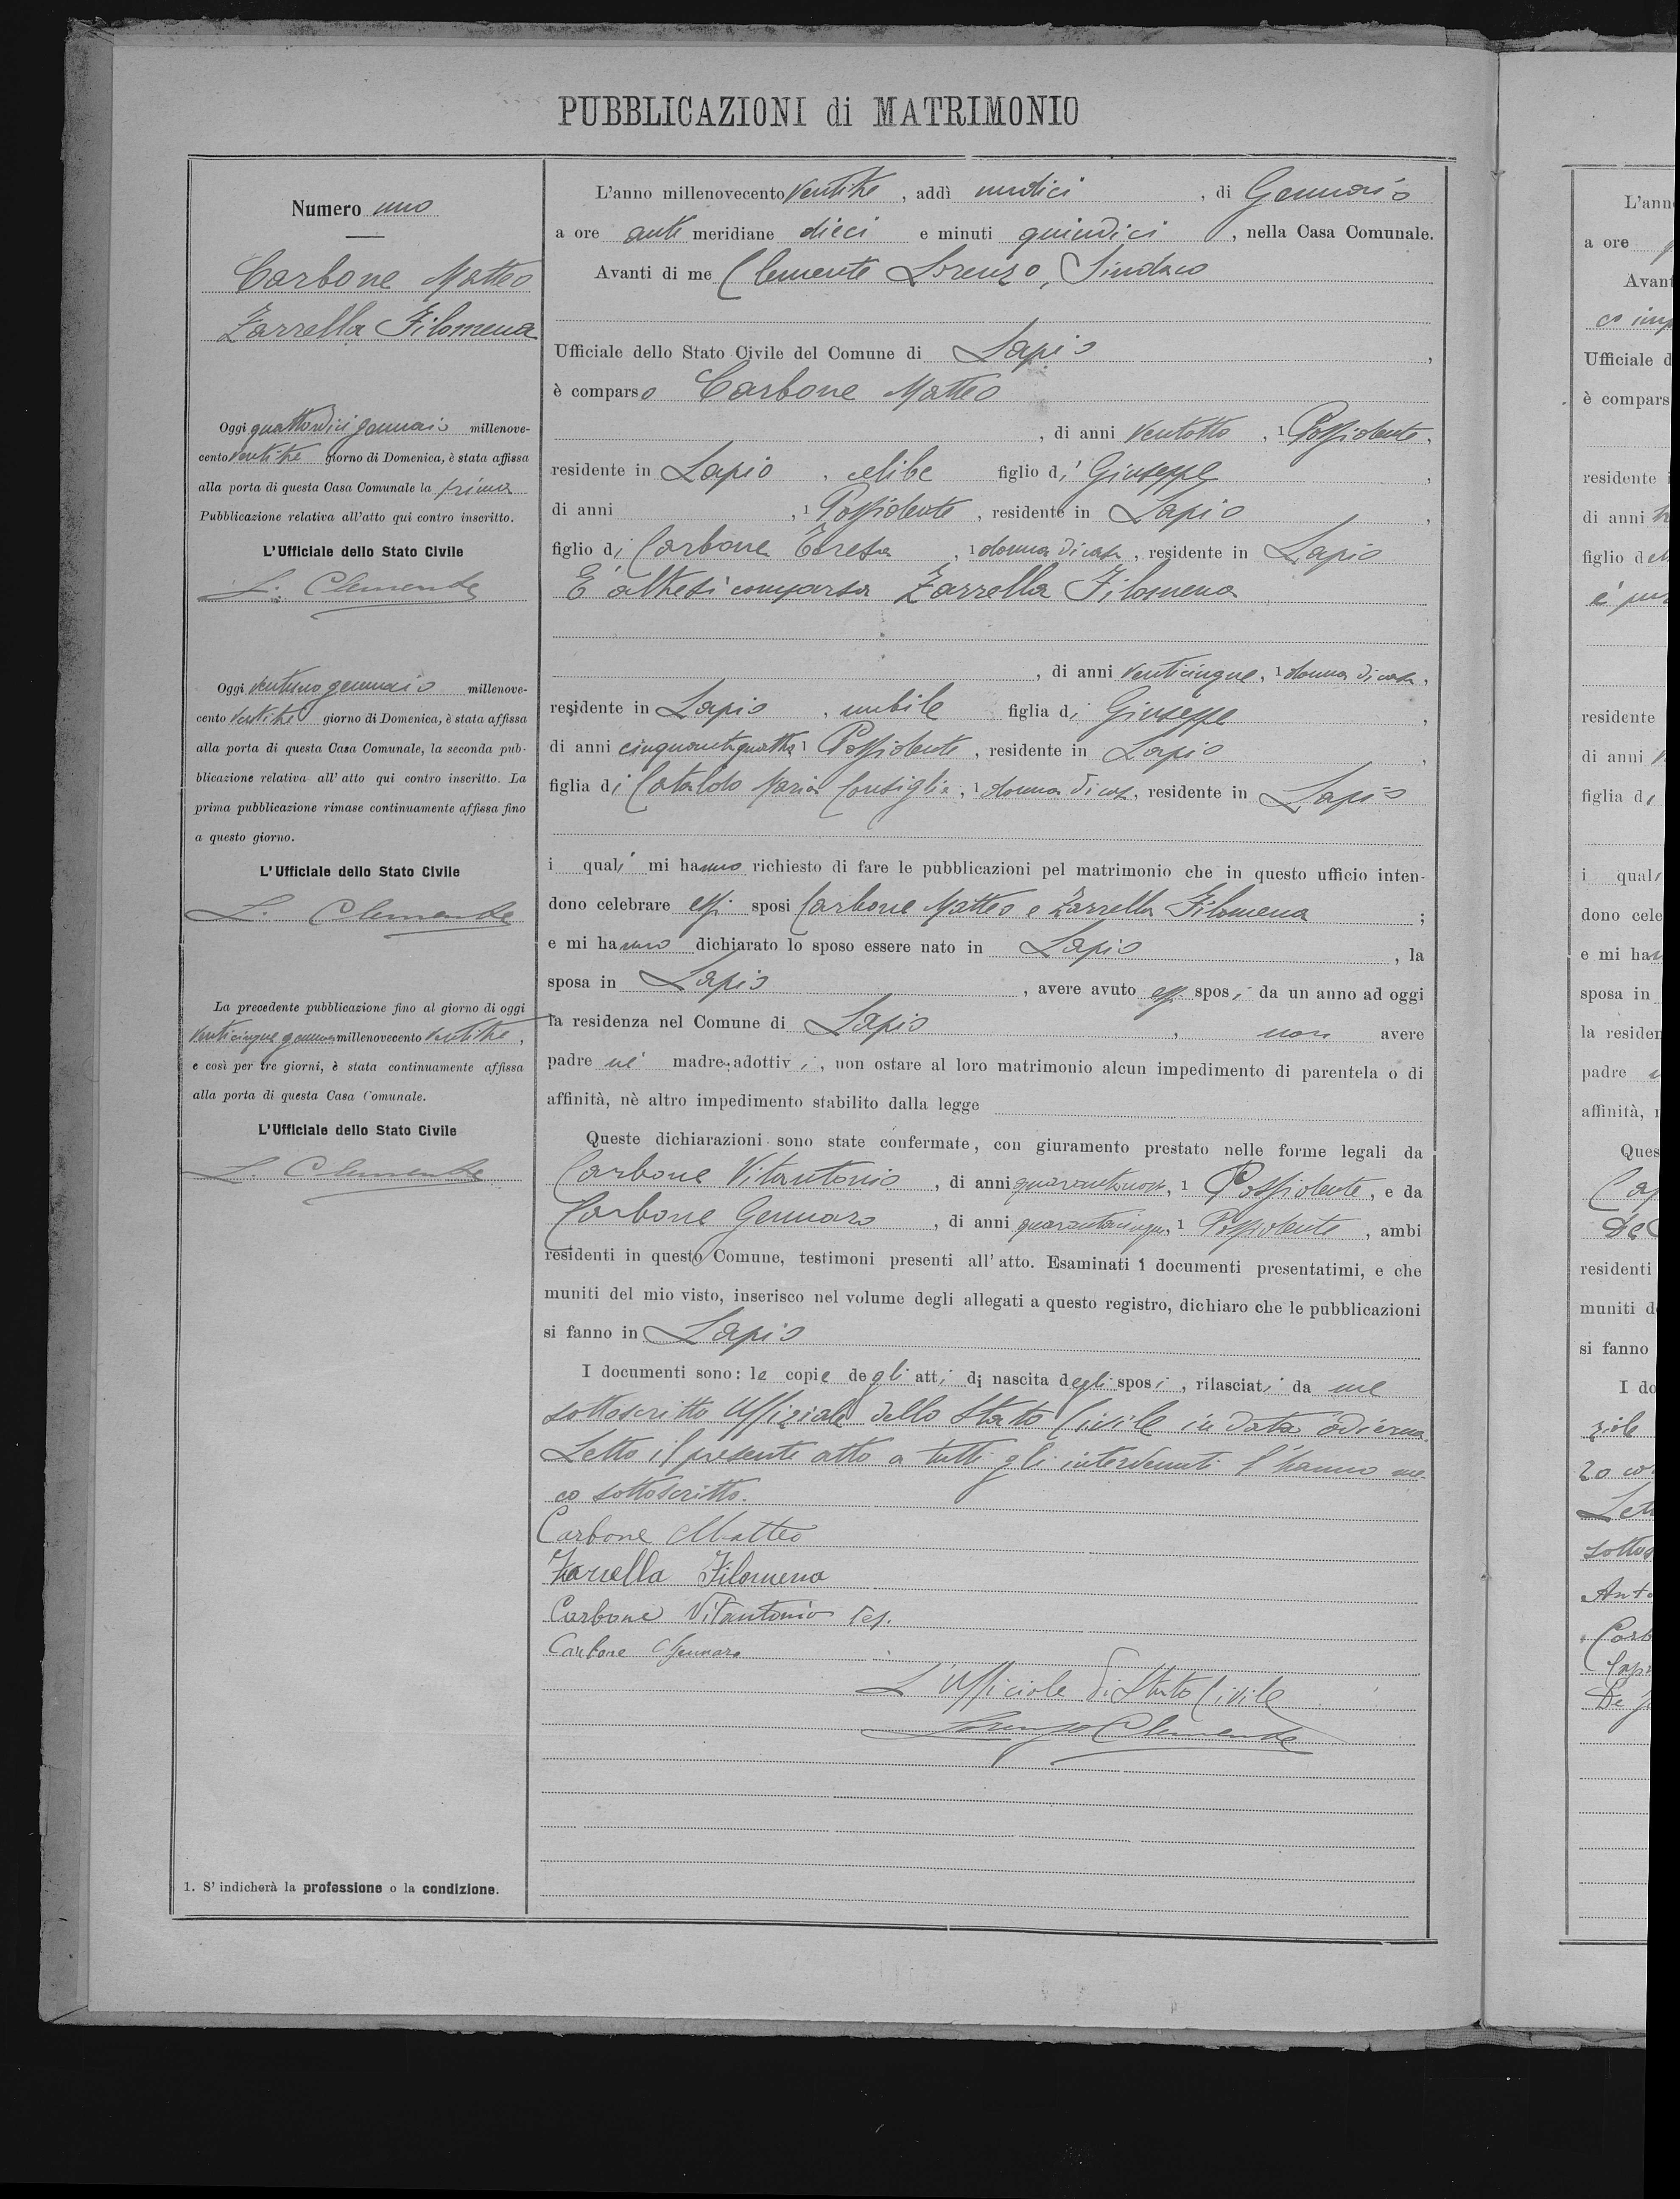 PUBBLICAZIONI di MATRIMONIO
Numero uno
Carbone Matteo
Zarrella Filomena
Oggi quattordici gennaio millenove-
cento ventitre giorno di Domenica, è stata affissa
alla porta di questa Casa Comunale la prima
Pubblicazione relativa all'atto qui contro inscritto.
L'Ufficiale dello Stato Civile
L. Clemente
Oggi ventuno gennaio millenove-
cento ventitre giorno di Domenica, è stata affissa
alla porta di questa Casa Comunale, la seconda pub-
blicazione relativa all' atto qui contro inscritto. La
prima pubblicazione rimase continuamente affissa fino
a questo giorno.
L'Ufficiale dello Stato Civile
L. Clemente
La precedente pubblicazione fino al giorno di oggi
venticinque gennaio millenovecento ventitre,
e così per tre giorni, è stata continuamente affissa
alla porta di questa Casa Comunale.
L'Ufficiale dello Stato Civile
L. Clemente
1. S' indicherà la professione o la condizione.
L'anno millenovecento ventitre, addì undici, di Gennaio
a ore ante meridiane dieci e minuti quindici, nella Casa Comunale.
Avanti di me Clemente Lorenzo, Sindaco
Ufficiale dello Stato Civile del Comune di Lapio,
è comparso Carbone Matteo
, di anni ventotto, 1 Possidente,
residente in Lapio, celibe figlio di Giuseppe,
di anni , 1 Possidente, residente in Lapio,
figlio di Carbone Teresa, 1 donna di casa, residente in Lapio
E' altresì comparsa Zarrella Filomena
, di anni venticinque, 1 donna di casa,
residente in Lapio, nubile figlia di Giuseppe,
di anni cinquantaquattro 1 Possidente, residente in Lapio,
figlia di Cataldo Maria Consiglia, 1 donna di casa, residente in Lapio
i quali mi hanno richiesto di fare le pubblicazioni pel matrimonio che in questo ufficio inten-
dono celebrare essi sposi Carbone Matteo e Zarrella Filomena;
e mi hanno dichiarato lo sposo essere nato in Lapio, la
sposa in Lapio, avere avuto essi sposi da un anno ad oggi
la residenza nel Comune di Lapio, non avere
padre nè madre adottivi, non ostare al loro matrimonio alcun impedimento di parentela o di
affinità, nè altro impedimento stabilito dalla legge
Queste dichiarazioni sono state confermate, con giuramento prestato nelle forme legali da
Carbone Vitantonio, di anni, 1 Possidente, e da
Carbone Gennaro, di anni quarantacinque, 1 Possidente, ambi
residenti in questo Comune, testimoni presenti all' atto. Esaminati i documenti presentatimi, e che
muniti del mio visto, inserisco nel volume degli allegati a questo registro, dichiaro che le pubblicazioni
si fanno in Lapio
I documenti sono: le copie degli atti di nascita degli sposi, rilasciati da me
sottoscritto Uffiziale dello Stato Civile in data odierna.
Letto il presente atto a tutti gli intervenuti l'hanno me-
co sottoscritto.
Carbone Matteo
Zarrella Filomena
Carbone Vitantonio tes.
Carbone Gennaro
L'Ufficiale di Stato Civile
Lorenzo Clemente
L'ann
a ore
Avant
co imp
Ufficiale d
è compars
residente i
di anni
figlio del
è
residente
di anni
figlia di
i quali
dono cele
e mi han
sposa in
la residen
padre
affinità,
Ques
Cap
De
residenti
muniti d
si fanno
I do
zile
20 co
Lett
sottos
Anto
Carb
Capo
De